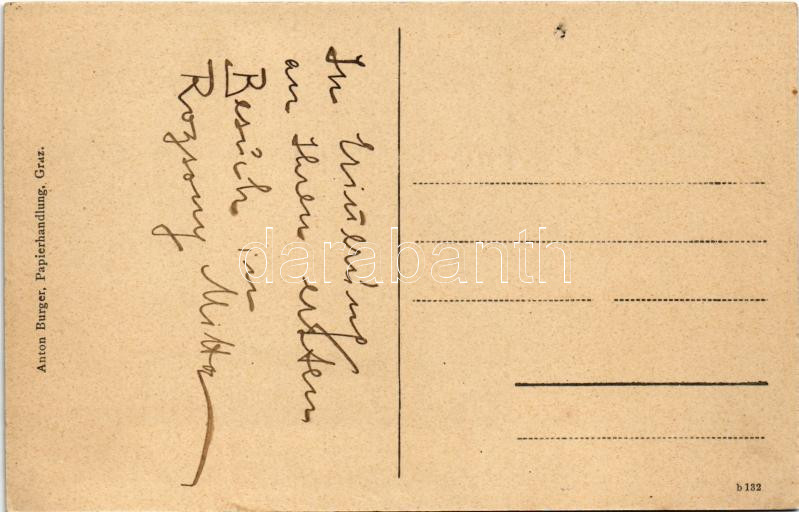 In Erinerung
an Ihren ersten
Besuch in
Rozsony Mitta
Anton Burger, Papierhandlung, Graz.
darabanth
b 132